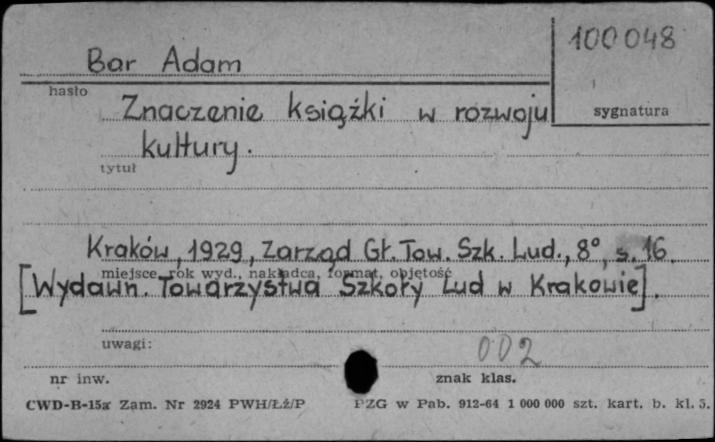 100048
Bar Adam
hasło
sygnatura
Znaczenie książki w rozwoju
kultury.
tytuł
Kraków, 1929, Zarząd Gł. Tow. Szk. Lud., 8°, s. 16.
miejsce, rok wyd., nakładca, format, objętość
[Wydawn. Towarzystwa Szkoły Lud w Krakowie].
uwagi:
002
nr inw.
znak klas.
CWD-B-15a Zam. Nr 2924 PWH/Łź/P PZG w Pab. 912-64 1 000 000 szt. kart. b. kl. 5.